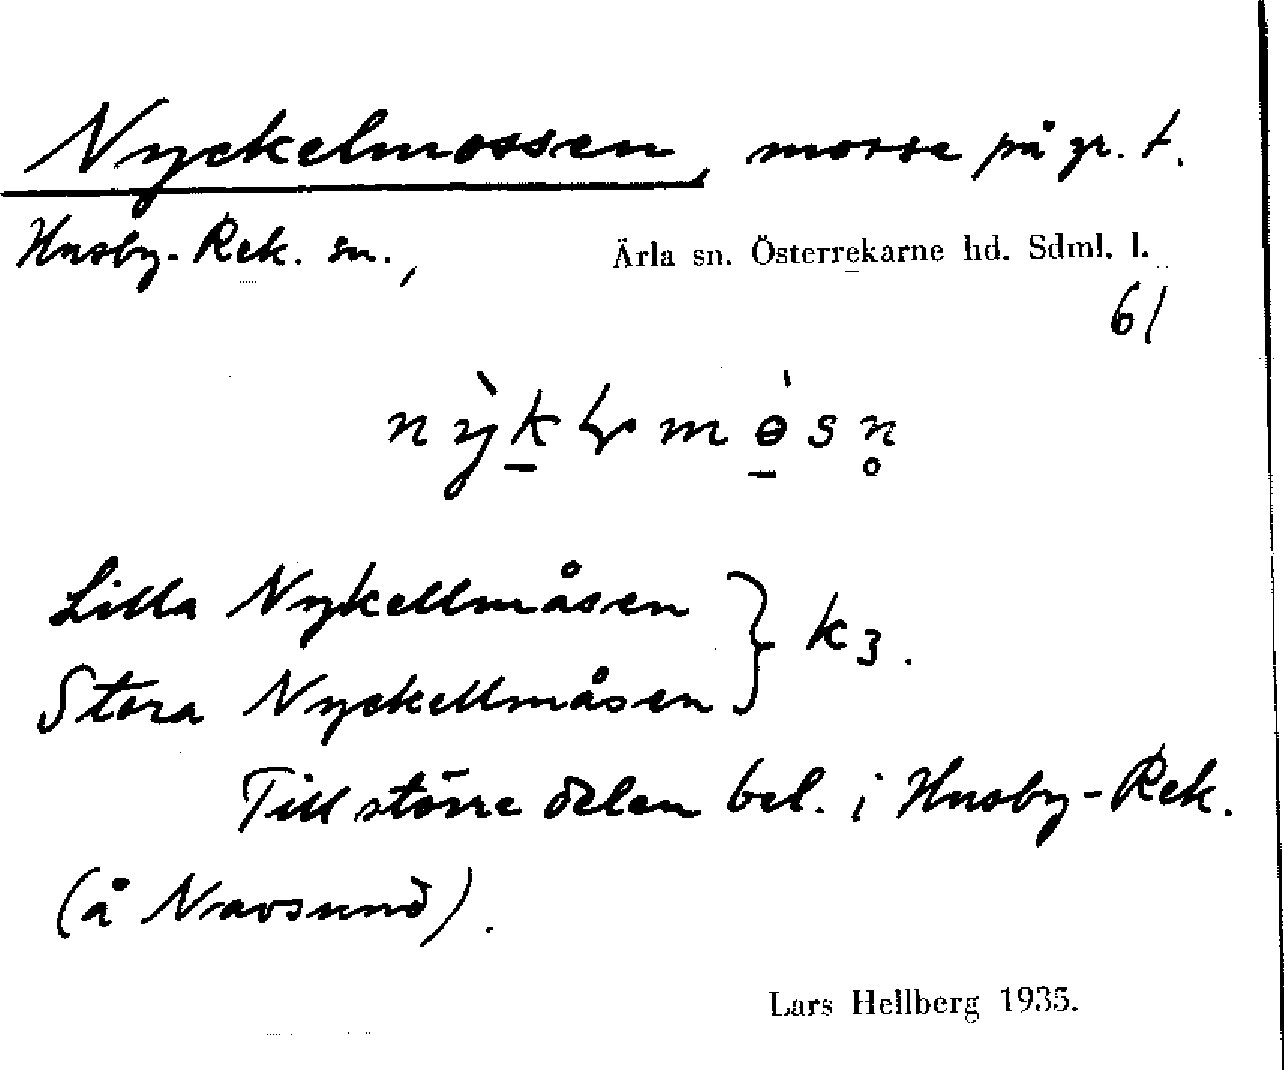 Nyckelmossen, mosse på gr. t.
Husby-Rek. sn., Ärla sn. Österrekarne hd. Sdml. l.
61
Lilla Nykellmåsen
Stora Nyckellmåsen } k 3.
Till större delen bel. i Husby-Rek.
(å Navsund).
Lars Hellberg 1935.